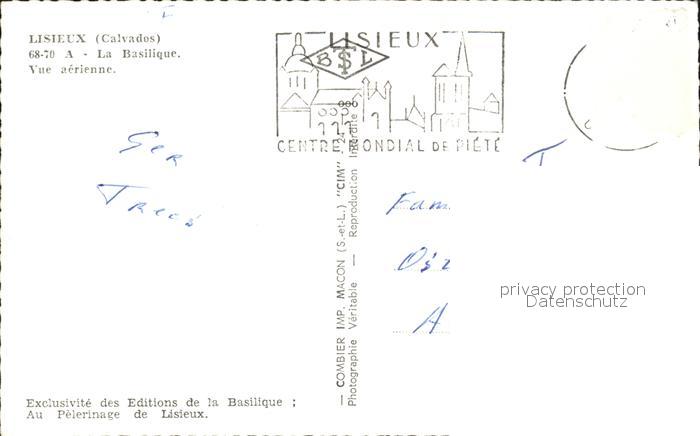 LISIEUX (Calvados)
68-70 A - La Basilique.
Vue aérienne.
LISIEUX
B TS L
CENTRE MONDIAL DE PIÉTÉ
T
Fam
A
privacy protection
Datenschutz
— COMBIER IMP. MACON (S.-et-L.) "CIM"
Photographie Véritable — Reproduction Interdite
Exclusivité des Editions de la Basilique ;
Au Pèlerinage de Lisieux.